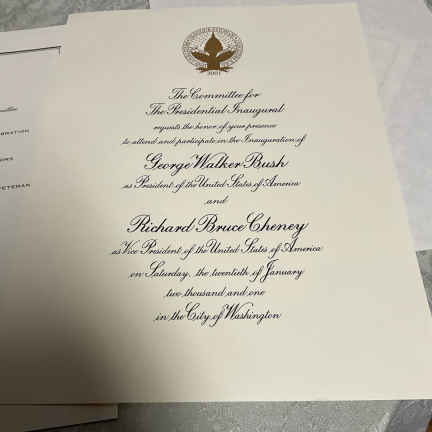 2001
The Committee for
The Presidential Inaugural
requests the honor of your presence
to attend and participate in the Inauguration of
George Walker Bush
as President of the United States of America
and
Richard Bruce Cheney
as Vice President of the United States of America
on Saturday, the twentieth of January
two thousand and one
in the City of Washington